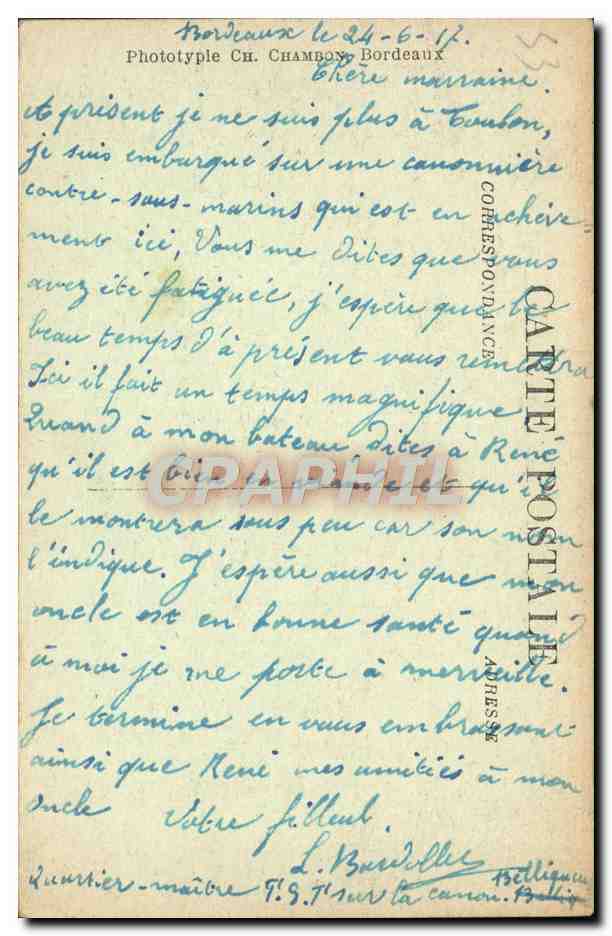 53
Bordeaux le 24-6-17.
Phototypie CH. CHAMBON, Bordeaux
Chère marraine.
A présent je ne suis plus à Toulon,
je suis embarqué sur une canonnière
contre-sous-marins qui est en achève=
ment ici, Vous me dites que vous
avez été fatiguée, j'espère que le
beau temps d'à présent vous remettra
Ici il fait un temps magnifique
Quand à mon bateau dites à René
qu'il est bien et qu'il
le montrera sous peu car son nom
l'indique. J'espère aussi que mon
oncle est en bonne santé quand
à moi je me porte à merveille.
Je termine en vous embrassant
ainsi que René mes amitiés à mon
oncle Votre filleul.
L. Bardollet
Quartier-maître T.S.T sur la canon. Belliqueuse
CARTE POSTALE
CORRESPONDANCE
ADRESSE
CPAPHIL